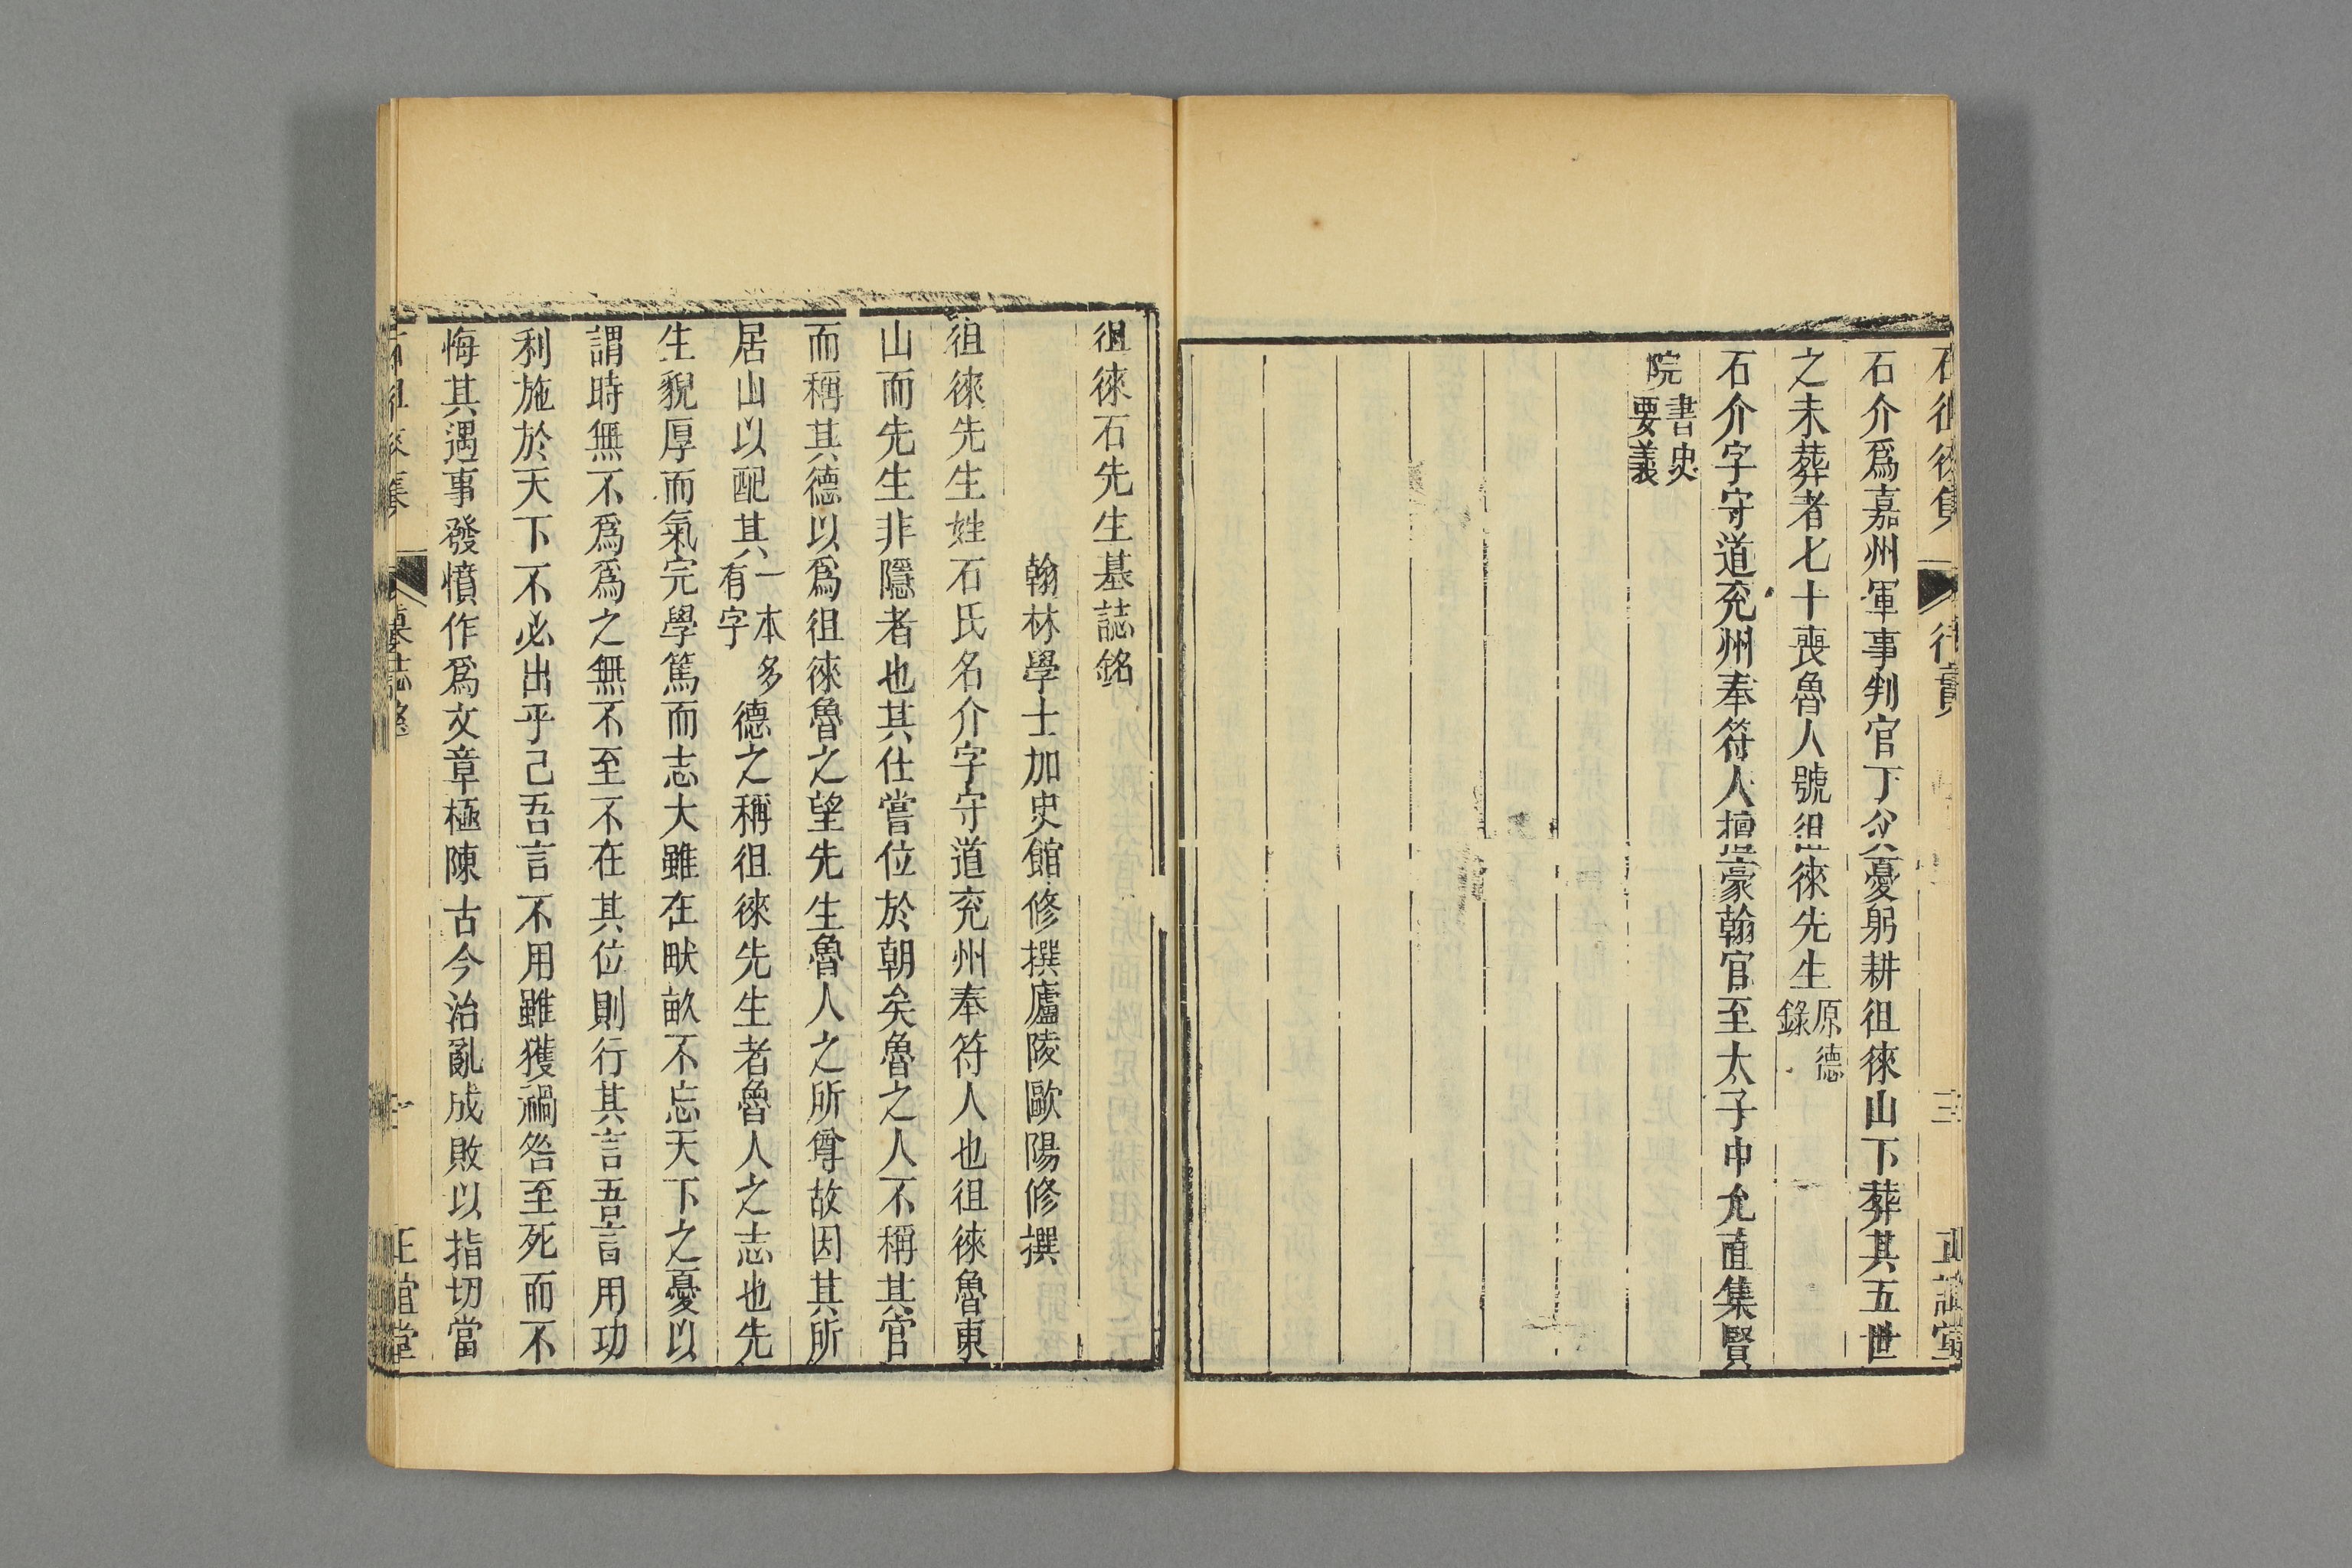 石介爲嘉州軍事判官丁父憂躬耕徂徠山下葬其五世
之未葬者七十喪魯人號徂徠先生原德錄
石介字守道兖州奉符人擅豪翰官至太子中允直集賢
院書史要義
徂徠石先生墓誌銘
翰林學士加史館修撰廬陵歐陽修撰
徂徠先生姓石氏名介字守道兖州奉符人也徂徠魯東
山而先生非隱者也其仕嘗位於朝矣魯之人不稱其官
而稱其德以爲徂徠魯之望先生魯人之所尊故因其所
居山以配其一本多有字德之稱徂徠先生者魯人之志也先
生貌厚而氣完學篤而志大雖在畎畝不忘天下之憂以
謂時無不爲爲之無不至不在其位則行其言吾言用功
利施於天下不必出乎己吾言不用雖獲禍咎至死而不
悔其遇事發憤作爲文章極陳古今治亂成敗以指切當